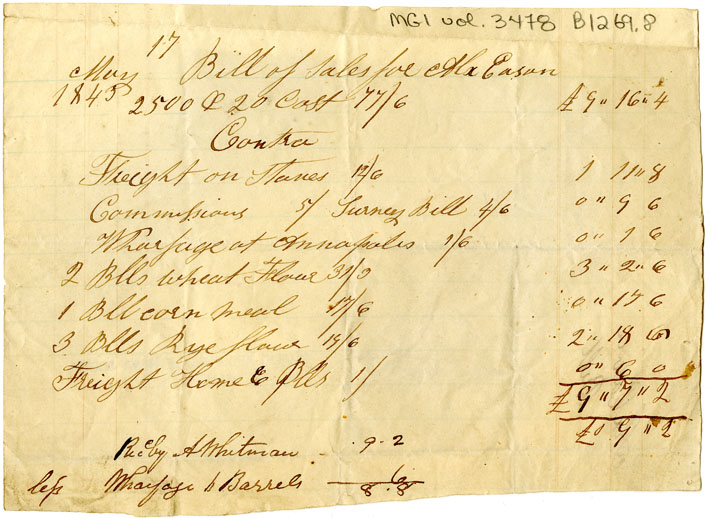 MG1 vol. 3478 B1269.8
17
May Bill of Sales for Alx Eason
1843 2500 & 20 Cost 77/6 £9 " 16 " 4
Contra
Freight on Staves 12/6 1 11 " 8
Commissions 5/ Survey Bill 4/6 0 " 9 6
Wharfage at Annapolis 1/6 0 " 1 6
2 Blls wheat Flour 31/3 3 " 2 " 6
1 Bll corn meal 17/6 0 " 17 6
3 Blls Rye flour 19/6 2 " 18 6
Freight Home 6 Blls 1/ 0 " 6 0
£9 " 7 " 2
£0 9 " 2
Recd by A Whitman 9 . 2
less Wharfage 6 Barrels 6
8 . 8